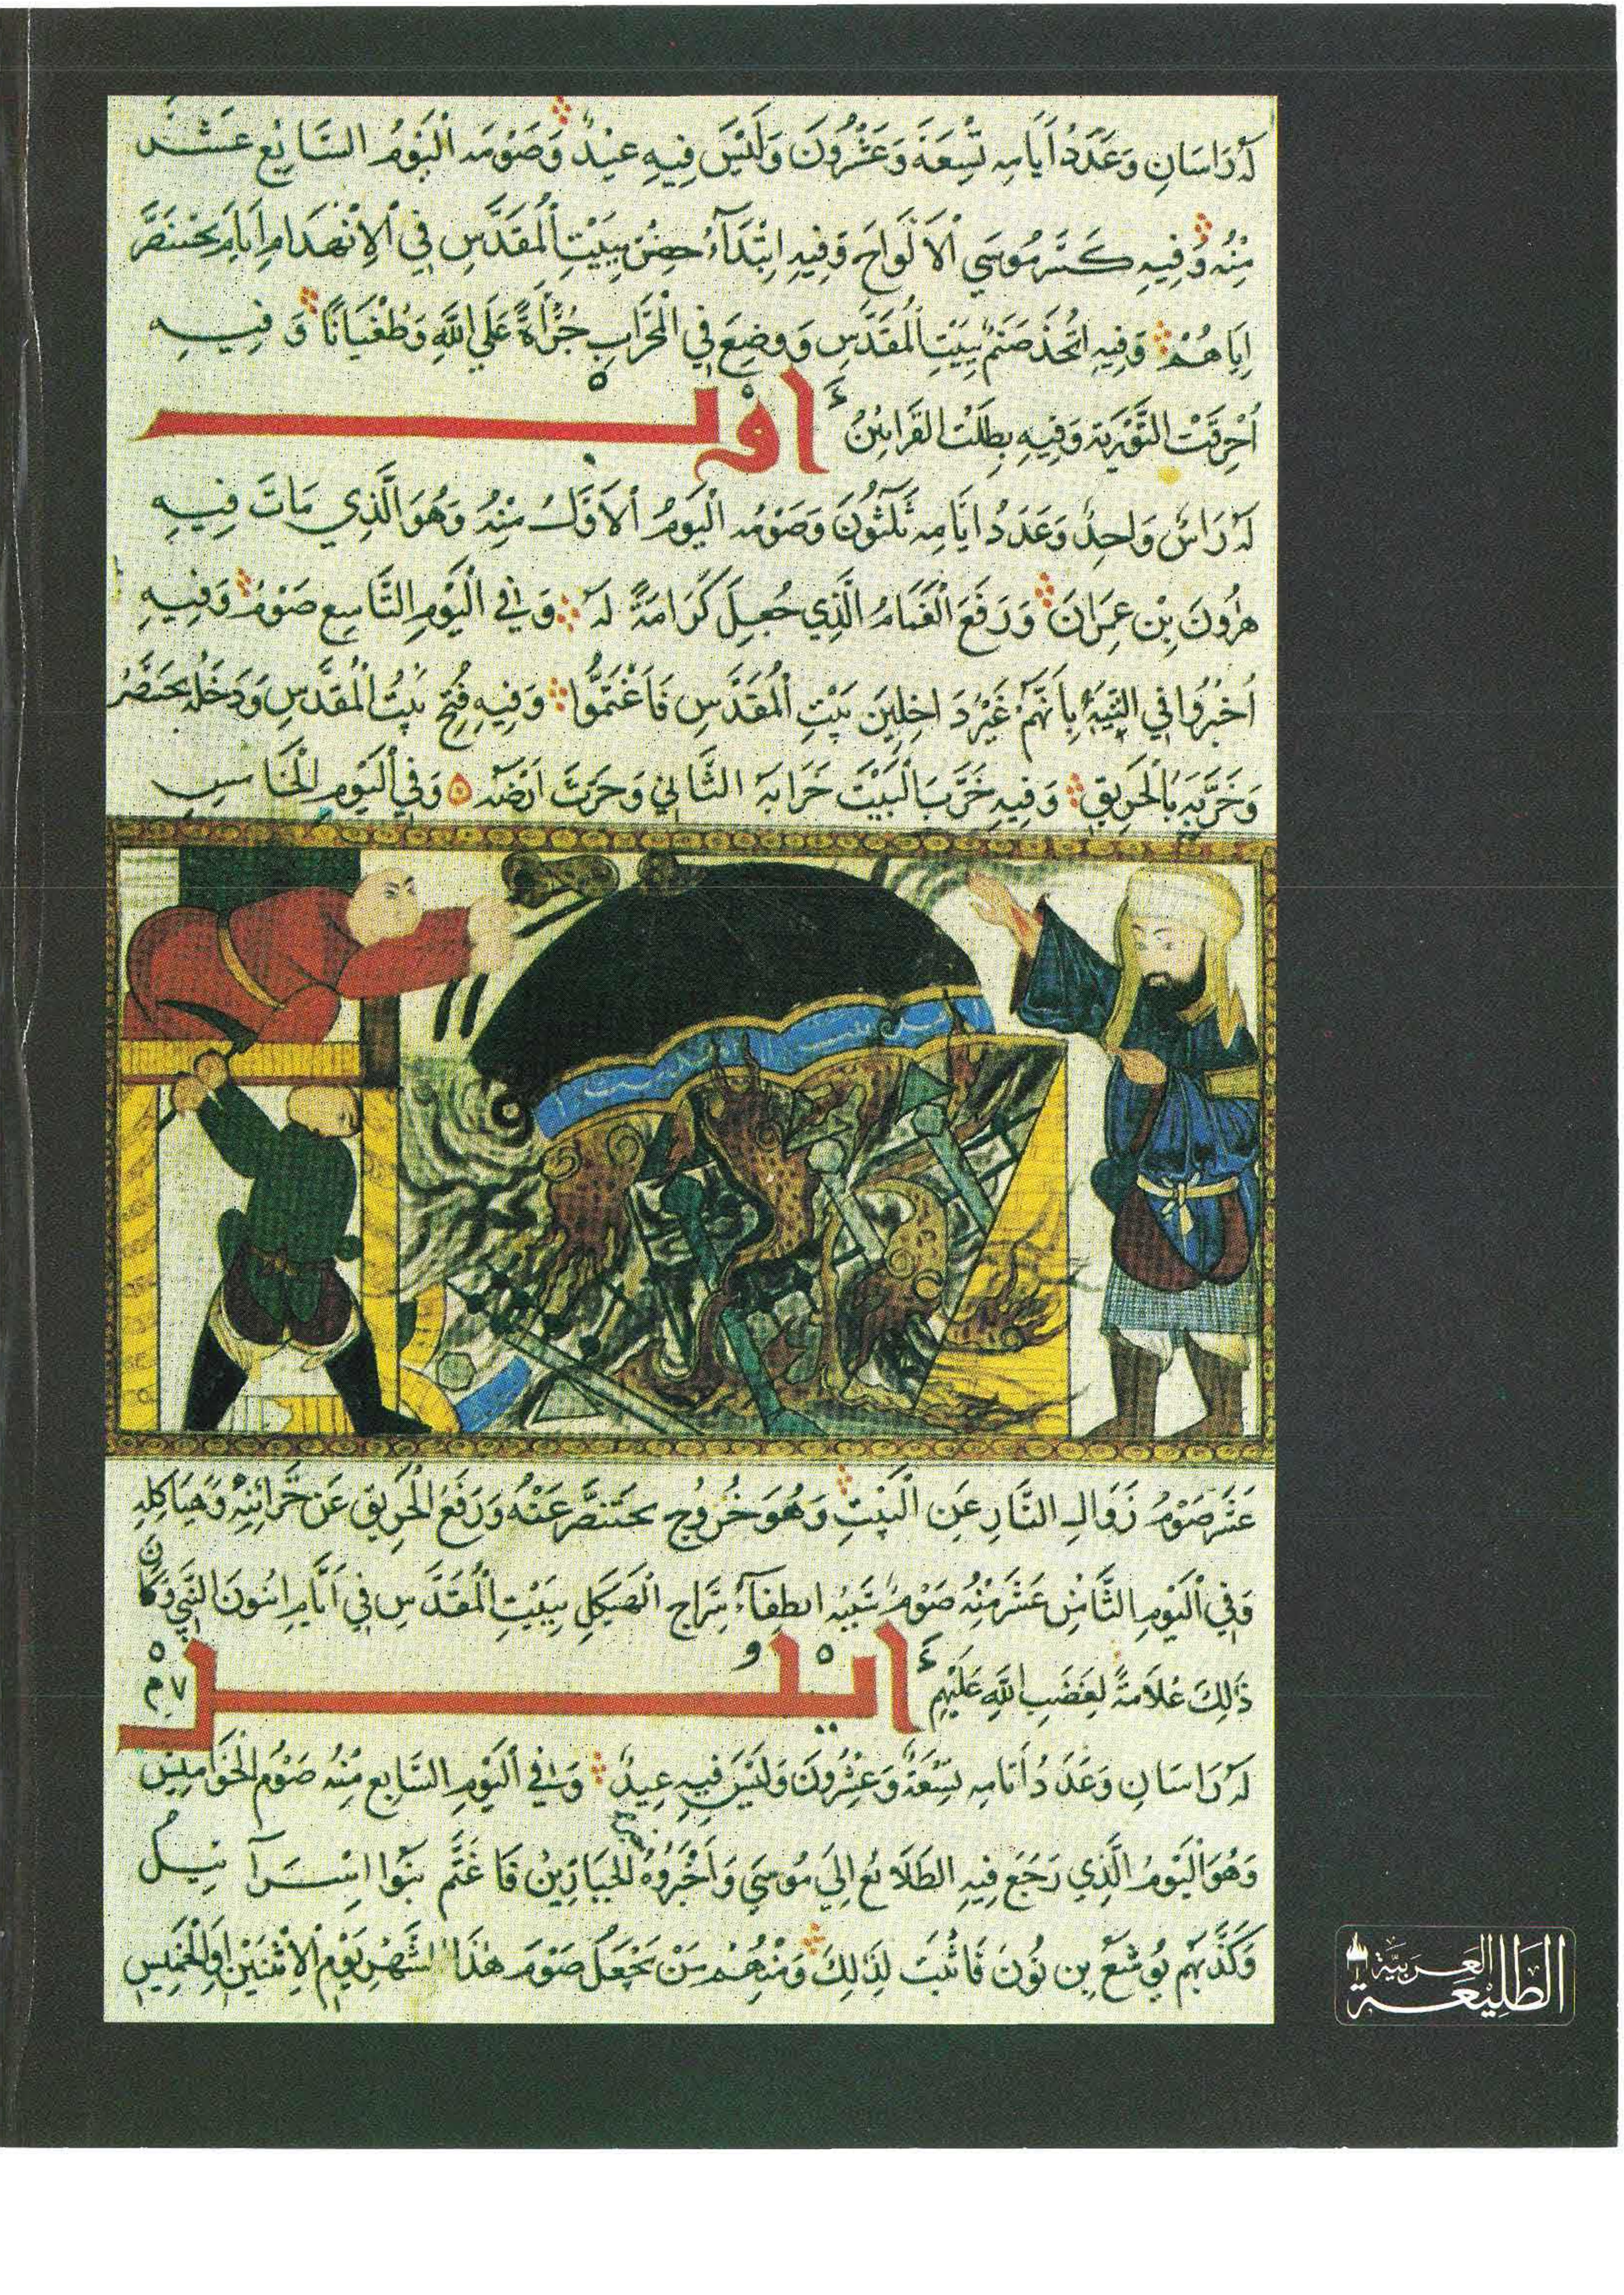 لَهُ رَاسَانِ وَعَدَدُ أَيَّامِهِ تِسْعَةَ وَعَشْرُونَ وَلَيْسَ فِيهِ عِيدٌ وَصَوْمُهُ الْيَوْمُ السَّابِعُ عَشَرَ
مِنْهُ وَفِيهِ كَسَّرَ مُوسَي الْأَلْوَاحَ وَفِيهِ ابْتَدَاءُ حِصْنِ بِبَيْتِ الْمُقَدَّسِ فِي الْإِنْهِدَامِ أَيَّامَ بُخْتَنَصَّرَ
إِيَاهُمْ وَفِيهِ اتُّخِذَ صَنَمٌ بِبَيْتِ الْمُقَدَّسِ وَوُضِعَ فِي الْمِحْرَابِ جُرْأَةً عَلَي اللَّهِ وَطُغْيَانًا وَفِيهِ
أُحْرِقَتْ التَّوْرِيَةِ وَفِيهِ بَطَلَتْ الْقَرَابِيْنُ أَوْبْ
لَهُ رَاسٌ وَاحِدٌ وَعَدَدُ أَيَّامِهِ ثَلَثُونَ وَصَوْمُهُ الْيَوْمُ الْأَوَّلُ مِنْهُ وَهُوَ الَّذِي مَاتَ فِيهِ
هَرُونَ بِنْ عِمْرَانَ وَرَفَعَ الْغَمَامُ الَّذِي جُعِلَ كَرَامَةً لَهُ وَفِي الْيَوْمِ التَّاسِعِ صَوْمٌ وَفِيهِ
أُخْبِرُوا فِي التِّيهِ بِأَنَّهُمْ غَيْرُ دَاخِلِينَ بَيْتِ الْمُقَدَّسِ فَاغْتَمُّوا وَفِيهِ فُتِحَ بَيْتُ الْمُقَدَّسِ وَدَخَلَهُ بُخْتَنَصَّرُ
وَخَرَّبَهُ بِالْحَرِيقِ وَفِيهِ خَرَّبَ الْبَيْتَ خَرَابَهُ الثَّانِي وَحَرَثَ أَرْضَهُ وَفِي الْيَوْمِ الْخَامِسِ
عَشَرَ صَوْمُ زَوَالِ النَّارِ عَنِ الْبَيْتِ وَهُوَ خُرُوجِ بُخْتَنَصَّرَ عَنْهُ وَرَفَعَ الْحَرِيقِ عَنْ خَزَائِنِهِ وَهَيَاكِلِهِ
وَفِي الْيَوْمِ الثَّامِنِ عَشَرَ مِنْهُ صَوْمٌ انْطِفَآءُ سِرَاجِ الْهَيْكَلِ بِبَيْتِ الْمُقَدَّسِ فِي أَيَّامِ النَّبِي وَكَانَ
ذَالِكَ عَلَامَةً لِغَضَبِ اللَّهِ عَلَيْهِمْ أَيْلُولْ
لَهُ رَاسَانِ وَعَدَدُ أَيَّامِهِ تِسْعَةٌ وَعِشْرُونَ وَلَيْسَ فِيهِ عِيدٌ وَفِي الْيَوْمِ السَّابِعِ مِنْهُ صَوْمُ
وَهُوَ الْيَوْمُ الَّذِي رَجَعَ فِيهِ الطَّلَائِعُ إِلَي مُوسَي وَأَخْبَرُوهُ الْجَبَّارِينَ فَاغْتَمَّ بَنُوا إِسْرَآئِيلُ
وَكَذَّبَهُمْ يُوشَعُ بِن نُونَ فَأُثِيبَ لِذَلِكَ وَمِنْهُمْ مَنْ يَجْعَلُ صَوْمَ هَذَا الشَّهْرِ يَوْمَ الْإِثْنَيْنِ أَوِ الْخَمِيسِ
الطَّلِيْعَة العَرَبِيَّة